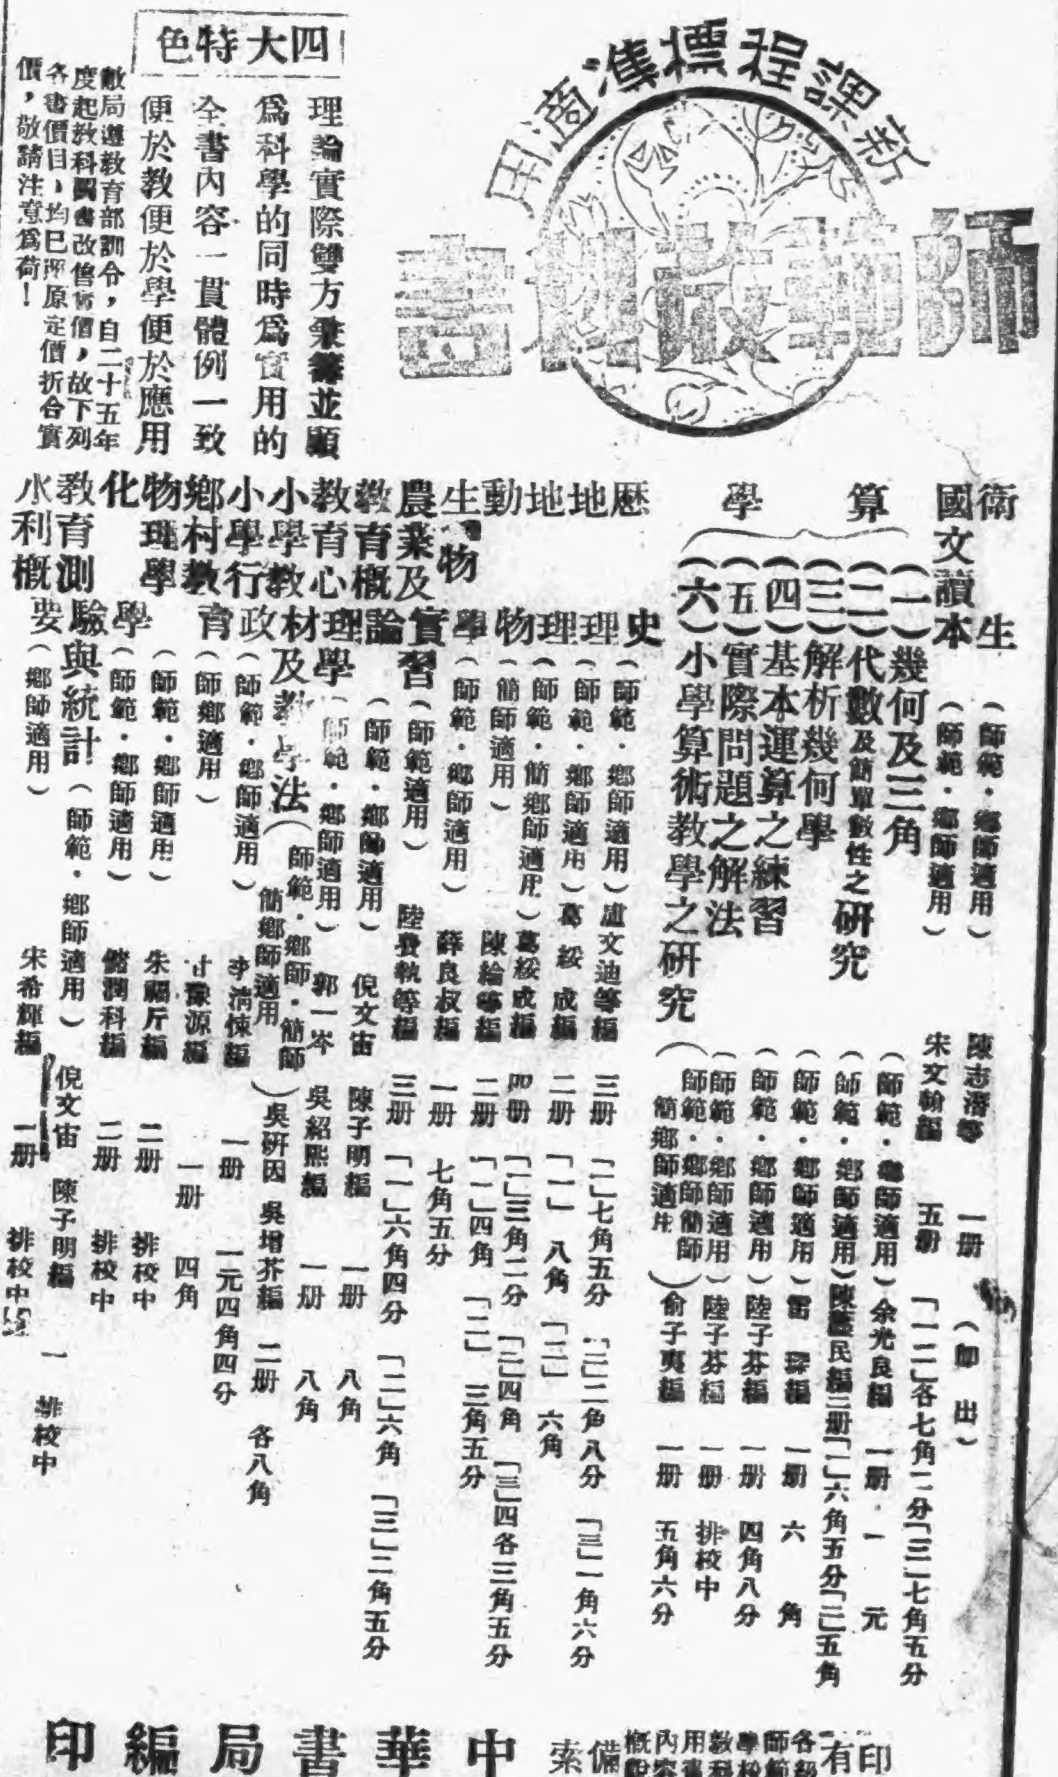 新課程標準適用
師範教科書
四大特色
理論實際雙方兼籌並顧
爲科學的同時爲實用的
全書內容一貫體例一致
便於教便於學便於應用
敝局遵教育部訓令，自二十五年
度起教科圖書改售實價，故下列
各書價目，均已照原定價折合實
價，敬請注意爲荷！
衛生（師範．鄉師適用）陳志潛等 一册（即出）
國文讀本（師範．鄉師適用）宋文翰編 五册「一二」各七角二分「三」七角五分
算學
（一）幾何及三角（師範．鄉師適用）余光良編 一册．一元
（二）代數及簡單數性之研究（師範．鄉師適用）陳藎民編二册「一」六角五分「二」五角
（三）解析幾何學（師範．鄉師適用）雷琛編 一册 六角
（四）基本運算之練習（師範．鄉師適用）陸子芬編 一册 四角八分
（五）實際問題之解法（師範．鄉師適用）陸子芬編 一册 排校中
（六）小學算術教學之研究（師範．鄉師簡師簡鄉師適用）俞子夷編 一册 五角六分
歷史（師範．鄉師適用）盧文迪等編 三册「一」七角五分「二」二角八分「三」一角六分
地理（師範．鄉師適用）葛綏成編 二册「一」八角「二」六角
地理（師範．簡鄉師適用）葛綏成編 四册「一」三角二分「二」四角「三」四各三角五分
動物（簡師適用）陳綸等編 二册「一」四角「二」三角五分
生物學（師範．鄉師適用）薛良叔編 一册 七角五分
農業及實習（師範適用）陸費執等編 三册「一」六角四分「二」六角「三」二角五分
教育概論（師範．鄉師適用）倪文宙 陳子明編 一册 八角
教育心理學（師範．鄉師適用）郭一岑 吳紹熙編 一册 八角
小學教材及教學法（師範．鄉師．簡師簡鄉師適用）吳研因 吳增芥編 二册 各八角
小學行政（師範．鄉師適用）李清悚編 一册 一元四角四分
鄉村教育（師鄉適用）甘豫源編 一册 四角
物理學（師範．鄉師適用）朱福炘編 二册 排校中
化學（師範．鄉師適用）儲潤科編 二册 排校中
教育測驗與統計（師範．鄉師適用）倪文宙 陳子明編 一 排校中
水利概要（鄉師適用）宋希輝編 一册 排校中
印有
各級師範學校教科用書內容概說
備索
中華書局編印